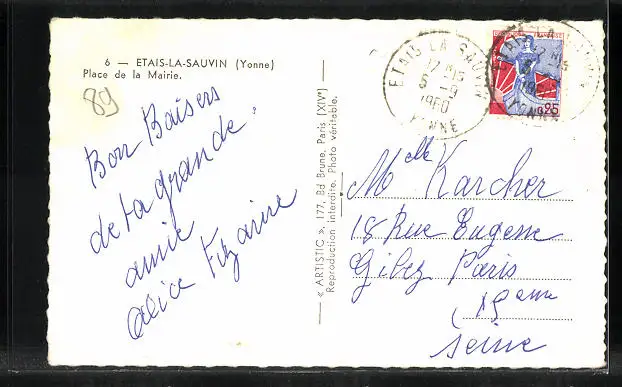 6 — ETAIS-LA-SAUVIN (Yonne)
Place de la Mairie.
89
Bon Baisers
de ta grande
amie
alice
« ARTISTIC », 177, Bd Brune, Paris (XIVe)
Reproduction interdite. Photo véritable.
ETAIS LA SAUVIN
12 H15
5 -9
1960
YONNE
FRANÇAISE
0,25
Melle Karcher
18 Rue Eugene
Gibez Paris
(15eme
Seine